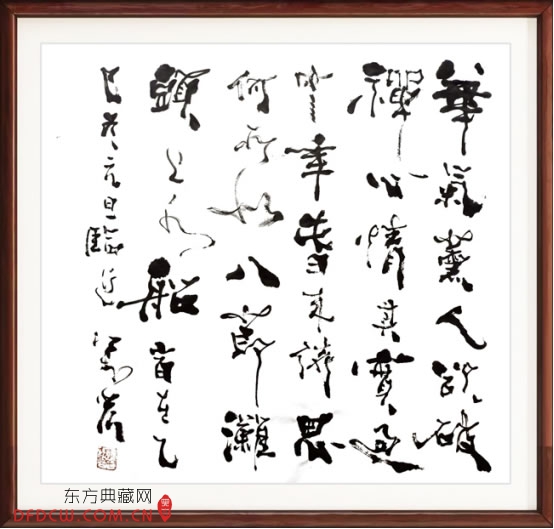 華氣薰人欲破
禪心情其實過
中年春來詩思
何所似八節灘
頭上水船
元旦
东方典藏网
DFDCW.COM.CN